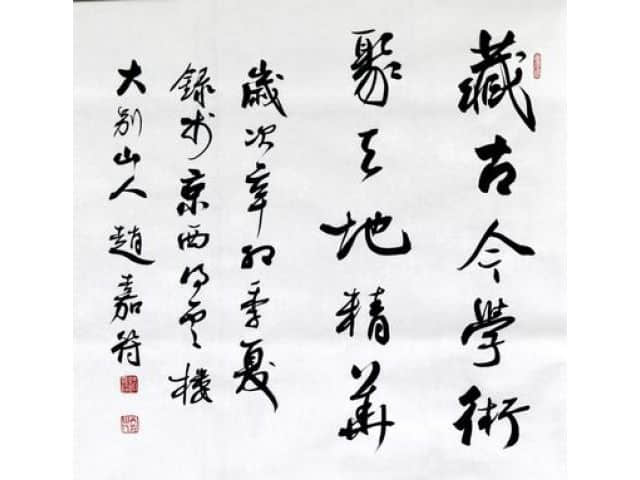 藏古今學術
聚天地精華
歲次辛卯季夏
錄於京西得雲樓
大別山人趙嘉符